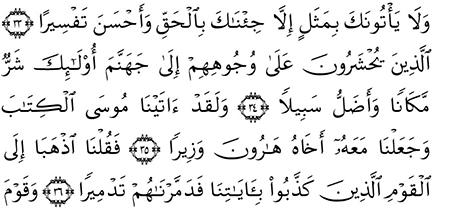 وَلَا يَأْتُونَكَ بِمَثَلٍ إِلَّا جِئْنَٰكَ بِٱلْحَقِّ وَأَحْسَنَ تَفْسِيرًا ٣٣
ٱلَّذِينَ يُحْشَرُونَ عَلَىٰ وُجُوهِهِمْ إِلَىٰ جَهَنَّمَ أُو۟لَٰٓئِكَ شَرٌّ
مَّكَانًا وَأَضَلُّ سَبِيلًا ٣٤ وَلَقَدْ ءَاتَيْنَا مُوسَى ٱلْكِتَٰبَ
وَجَعَلْنَا مَعَهُۥٓ أَخَاهُ هَٰرُونَ وَزِيرًا ٣٥ فَقُلْنَا ٱذْهَبَآ إِلَى
ٱلْقَوْمِ ٱلَّذِينَ كَذَّبُوا۟ بِـَٔايَٰتِنَا فَدَمَّرْنَٰهُمْ تَدْمِيرًا ٣٦ وَقَوْمَ